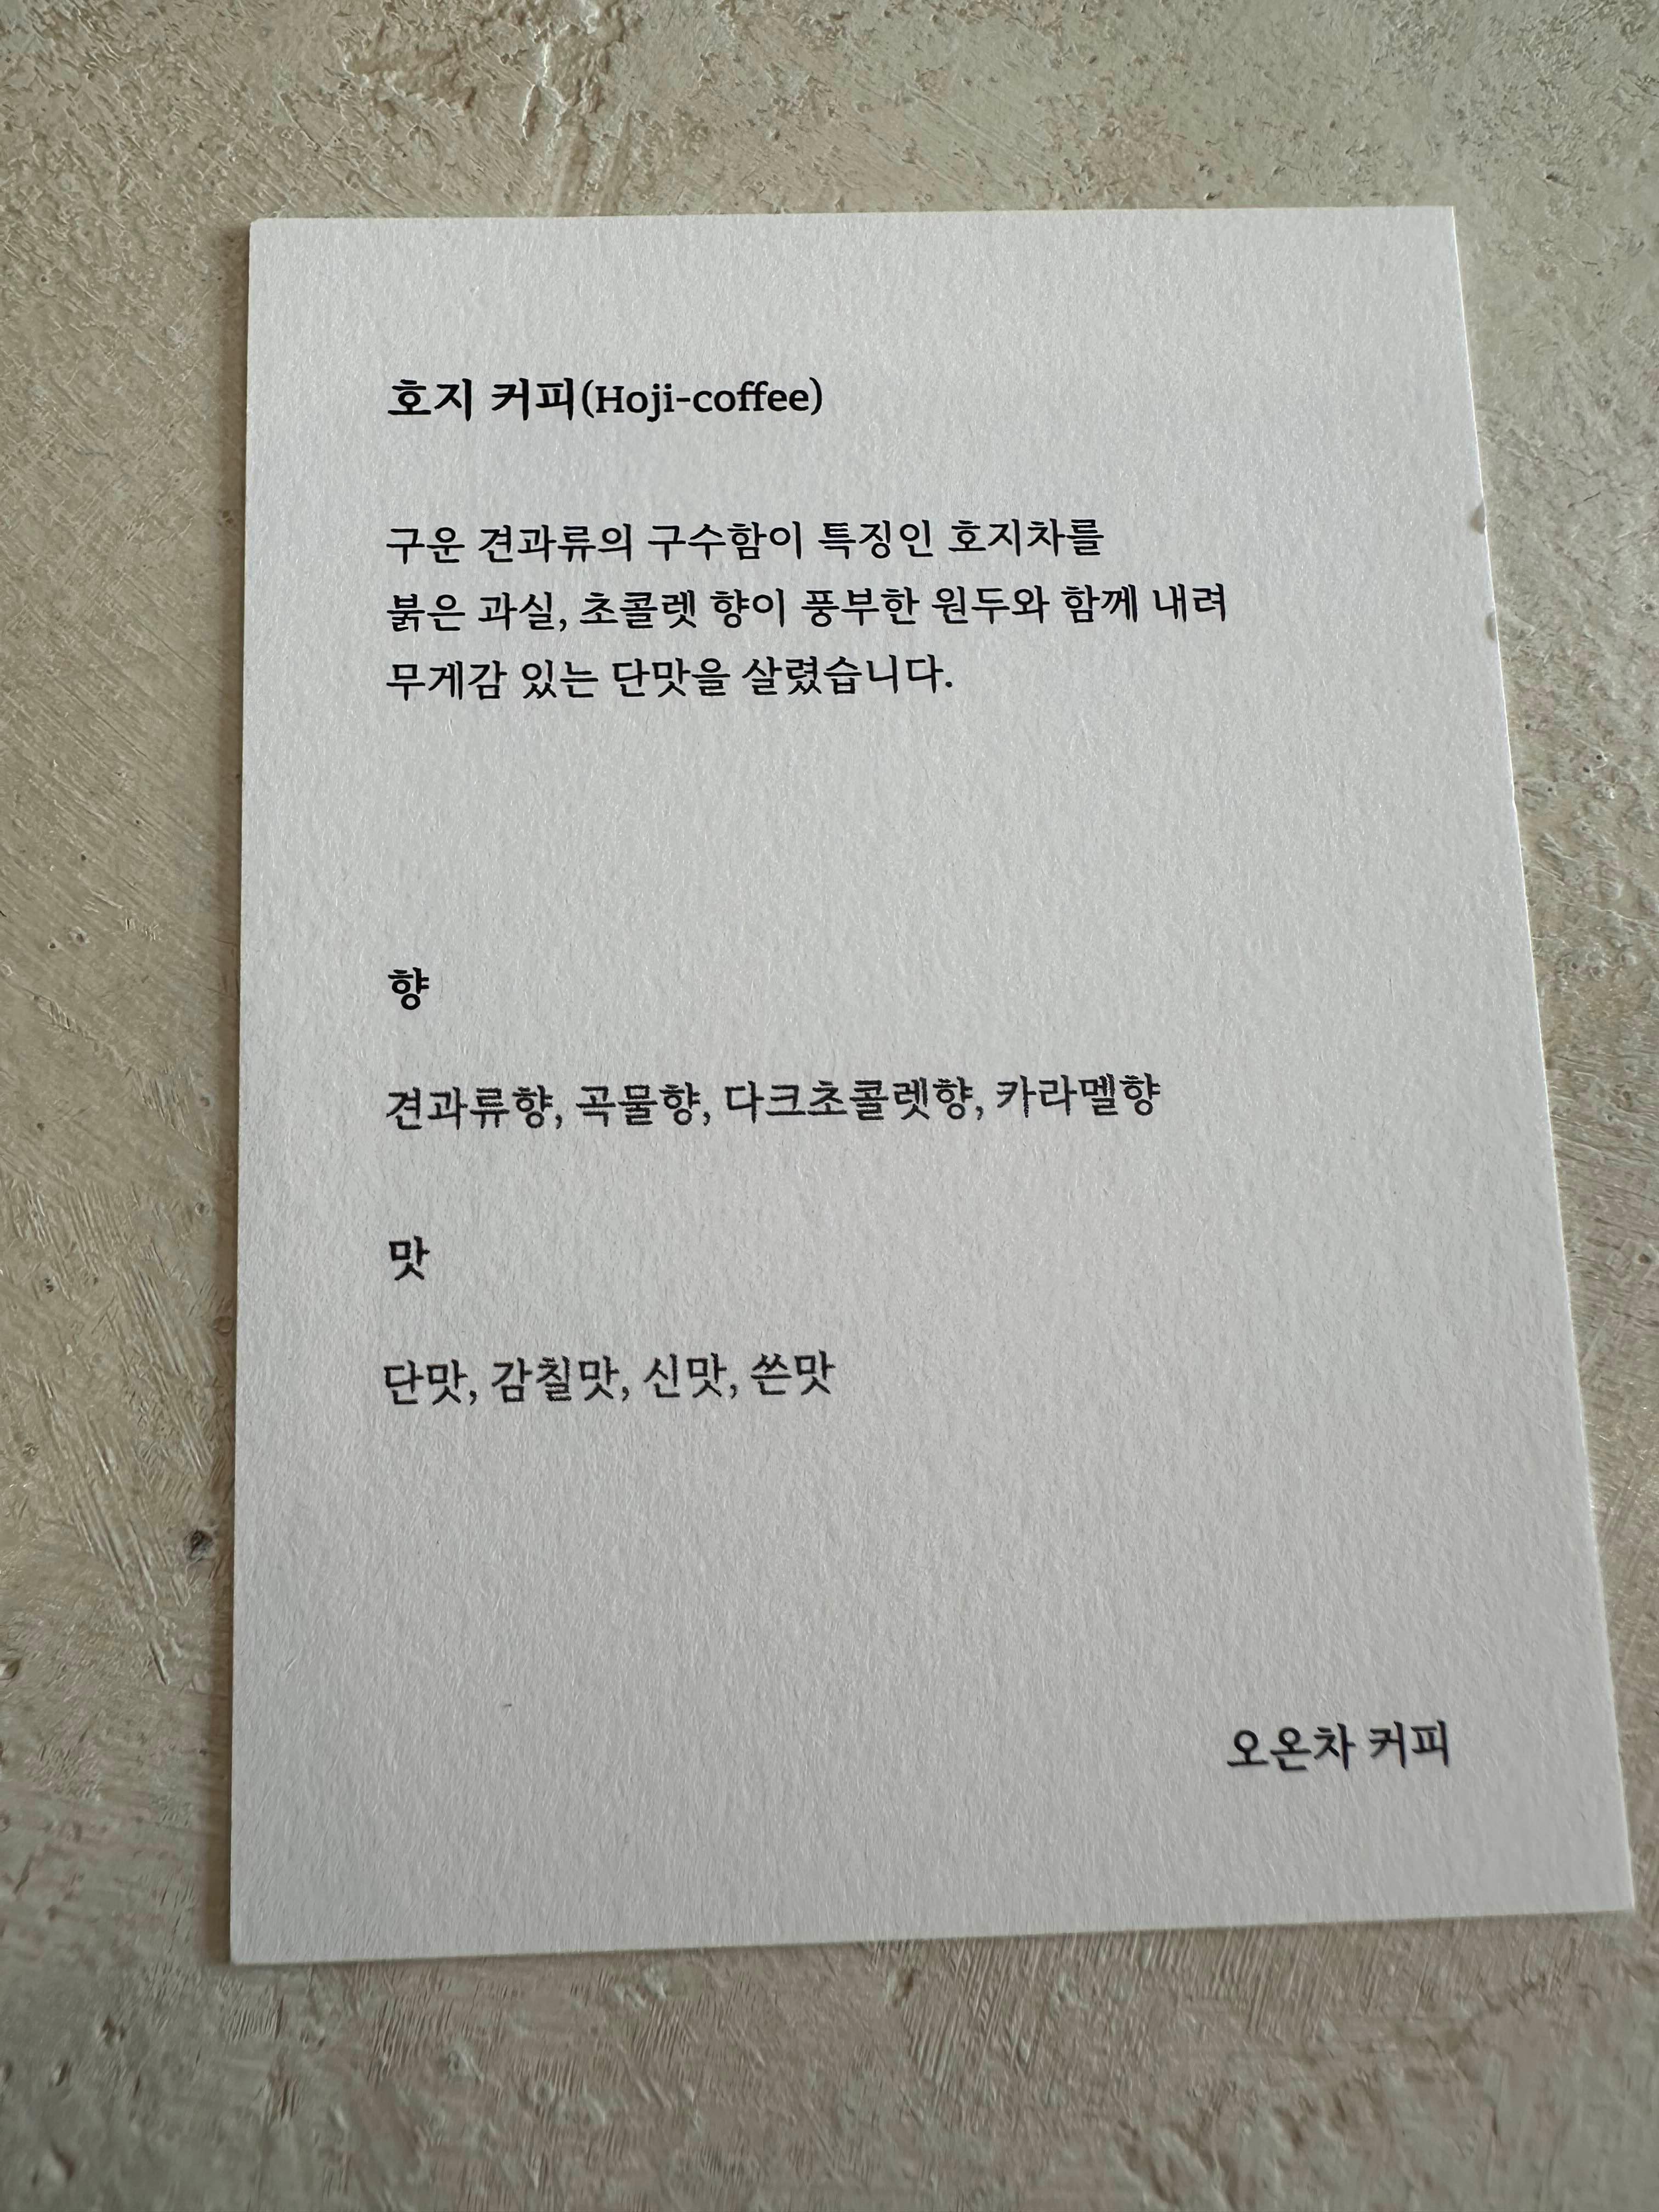 호지 커피(Hoji-coffee)
구운 견과류의 구수함이 특징인 호지차를
붉은 과실, 초콜렛 향이 풍부한 원두와 함께 내려
무게감 있는 단맛을 살렸습니다.
향
견과류향, 곡물향, 다크초콜렛향, 카라멜향
맛
단맛, 감칠맛, 신맛, 쓴맛
오온차 커피